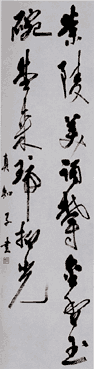 蘭陵美酒鬱金香玉
碗盛来琥珀光
真知子書